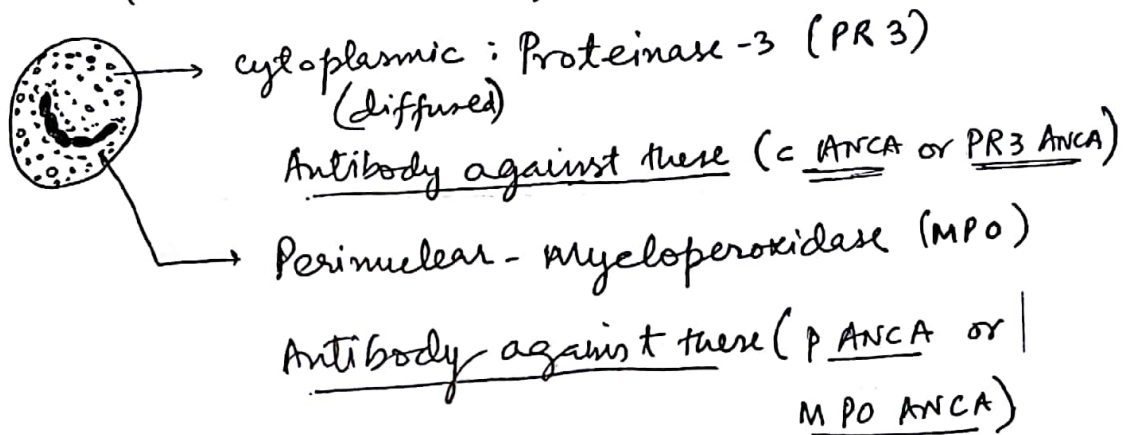 cytoplasmic : Proteinase -3 (PR3)
(diffused)
Antibody against these (c ANCA or PR3 ANCA)
Perinuclear - Myeloperoxidase (MPO)
Antibody against these (P ANCA or
MPO ANCA)